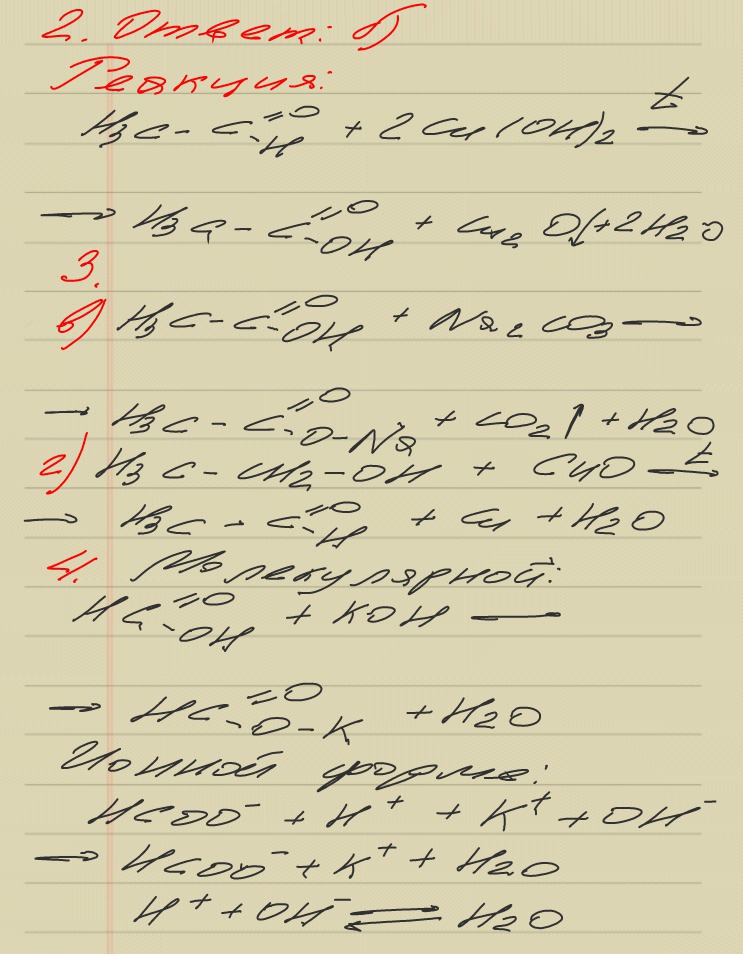 2. Ответ: б)
Реакция:
H3C-C=O-H + 2Cu(OH)2 t→
→ H3C-C=O-OH + Cu2O↓ + 2H2O
3.
в) H3C-C=O-OH + Na2CO3 →
→ H3C-C=O-O-Na + CO2↑ + H2O
г) H3C-CH2-OH + CuO t→
→ H3C-C=O-H + Cu + H2O
4. Молекулярной:
HC=O-OH + KOH —
→ HC=O-O-K + H2O
Ионной форме:
HCOO⁻ + H⁺ + K⁺ + OH⁻
→ HCOO⁻ + K⁺ + H2O
H⁺ + OH⁻ ⇌ H2O